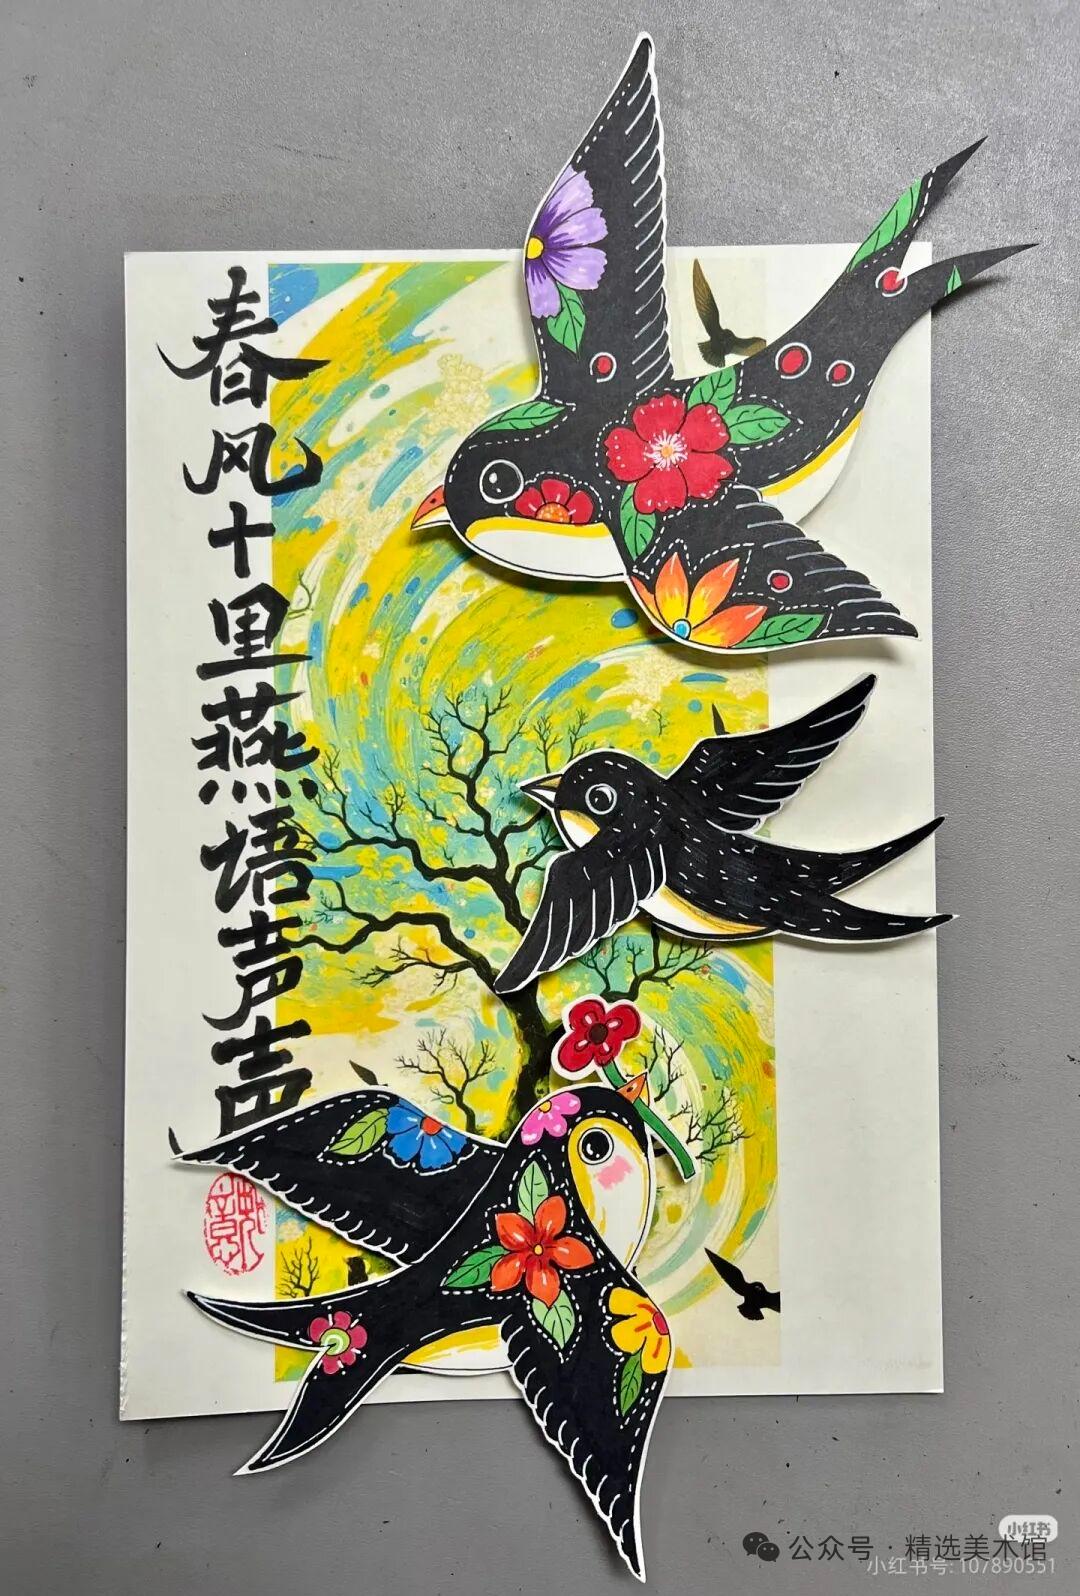 春风十里燕语声声
小红书
公众号·精选美术馆
小红书号:107890551